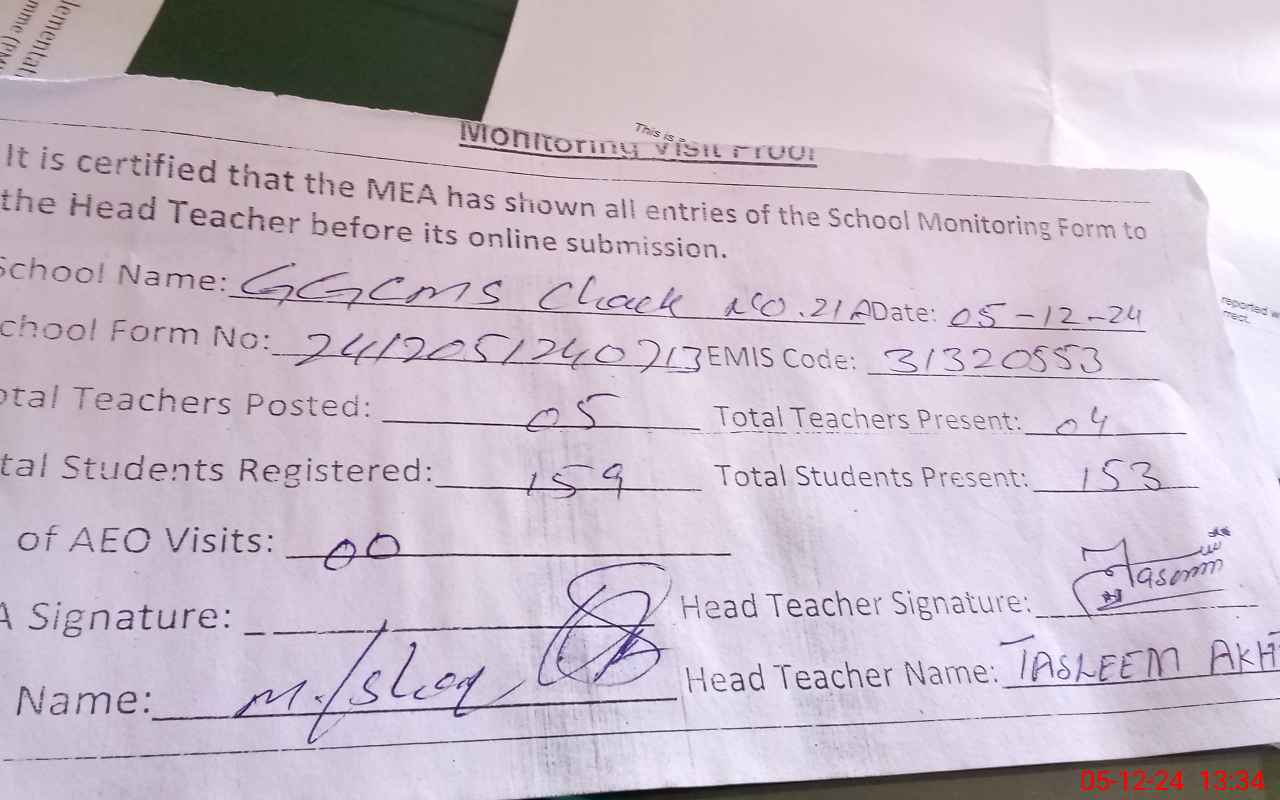 lementat
mme (PM
This is
Monitoring Visit Proof
It is certified that the MEA has shown all entries of the School Monitoring Form to
the Head Teacher before its online submission.
School Name: GGCMS Chack NO.21A Date: 05-12-24
chool Form No: 2412051240713 EMIS Code: 31320553
otal Teachers Posted: 05 Total Teachers Present: 04
tal Students Registered: 159 Total Students Present: 153
of AEO Visits: 00
A Signature: Head Teacher Signature: Tasleem
Name: M. Ishaq Head Teacher Name: TASLEEM AKH
reported w
rrect.
05-12-24 13:34